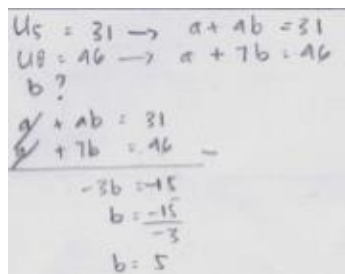 U5 = 31 → a + 4b = 31
U8 = 46 → a + 7b = 46
b ?
a + 4b = 31
a + 7b = 46
-
-3b = -15
b = -15/-3
b = 5